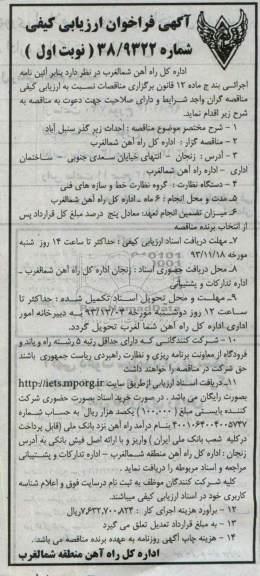 آگهی فراخوان ارزیابی کیفی
شماره ۳۸/۹۳۲۲ ( نوبت اول )
اداره کل راه آهن شمالغرب در نظر دارد بنابر آئین نامه
اجرائی بند ج ماده ۱۲ قانون برگزاری مناقصات نسبت به ارزیابی کیفی
مناقصه گران واجد شرایط و دارای صلاحیت جهت دعوت به مناقصه به
شرح زیر اقدام نماید.
۱ – شرح مختصر موضوع مناقصه : احداث زیر گذر سنبل آباد
۲ – مناقصه گزار : اداره کل راه آهن شمالغرب
۳ – آدرس : زنجان – انتهای خیابان سعدی جنوبی – ساختمان
اداری – اداره کل راه آهن شمالغرب
۴ – دستگاه نظارت : گروه نظارت خط و سازه های فنی
۵ – مدت و محل انجام : ۶ ماه – اداره کل راه آهن شمالغرب
۶ – میزان تضمین انجام تعهد: معادل پنج درصد مبلغ کل قرارداد پس
از انتخاب برنده مناقصه
۷ – مهلت دریافت اسناد ارزیابی کیفی : حداکثر تا ساعت ۱۴ روز شنبه
مورخه ۹۳/۱۱/۱۸
۸ – محل دریافت حضوری اسناد : زنجان اداره کل راه آهن شمالغرب –
اداره تدارکات و پشتیبانی
۹ – مهلت و محل تحویل اسناد تکمیل شده : حداکثر تا
ساعت ۱۲ روز دوشنبه مورخه ۹۳/۱۲/۰۴ به دبیرخانه امور
اداری اداره کل راه آهن شمالغرب تحویل گردد.
۱۰ – شرکت کنندگانی که دارای حداقل رتبه ۵ رشته راه و باند و
فرودگاه از معاونت برنامه ریزی و نظارت راهبردی ریاست جمهوری باشند
حق شرکت در مناقصه را خواهند داشت
۱۱ – دریافت اسناد ارزیابی از طریق سایت http://iets.mporg.ir
بصورت رایگان می باشد . در صورت خرید اسناد بصورت حضوری شرکت
کننده بایستی مبلغ (۱۰۰.۰۰۰) یکصد هزار ریال به حساب شماره
۴۰۰۱۰۶۴۰۰۴۰۰۵۷۴۷ بنام درآمد راه آهن نزد بانک ملی (قابل پرداخت
در کلیه شعب بانک ملی ایران ) واریز و با ارائه اصل فیش بانکی به آدرس
زنجان : اداره کل راه آهن منطقه شمالغرب – اداره تدارکات و پشتیبانی
مراجعه و اسناد مربوطه را دریافت نماید .
کلیه شرکت کنندگان موظف به ثبت نام درسایت فوق و اعلام شناسه
کاربری خود در اسناد ارزیابی کیفی میباشند.
۱۲ – برآورد هزینه اجرای کار : ۷,۶۳۲,۷۰۰,۸۲۴ ریال
۱۳ – به مبلغ قرارداد تعدیل تعلق می گیرد
۱۴ – هزینه چاپ آگهی روزنامه به عهده برنده مناقصه می باشد.
اداره کل راه آهن منطقه شمالغرب